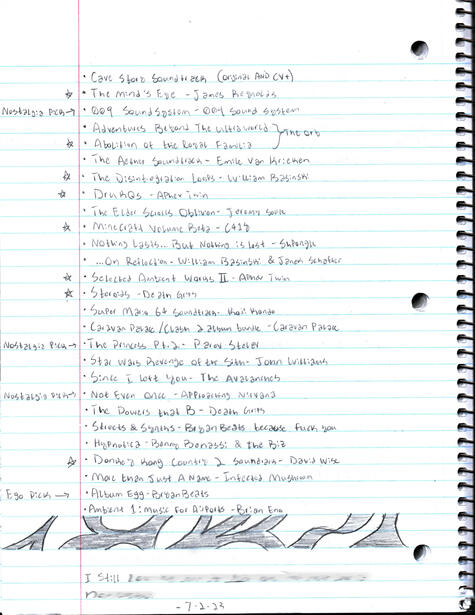 • Cave Story Soundtrack (original AND CV+)
☆ • The Mind's Eye - James Reynolds
Nostalgia Picks → • 009 Sound System - 009 Sound System
• Adventures Beyond The Ultraworld
} The Orb
☆ • Abolition of the Royal Familia
• The Aether Soundtrack - Emile Van Krieken
☆ • The Disintegration Loops - William Basinski
☆ • DrukQs - Aphex Twin
• The Elder Scrolls Oblivion - Jeremy Soule
☆ • Minecraft Volume Beta - C418
• Nothing Lasts... But Nothing is lost - Shpongle
• ...On Reflection - William Basinski & Janek Schaefer
☆ • Selected Ambient Works II - Aphex Twin
☆ • Steroids - Death Grips
• Super Mario 64 Soundtrack - Koji Kondo
• Caravan Palace/Clash 2 album bundle - Caravan Palace
Nostalgia Picks → • The Princess Pt. 2 - Parov Stelar
• Star Wars Revenge of the Sith - John Williams
• Since I Left You - The Avalanches
Nostalgia Picks → • Not Even Once - Approaching Nirvana
• The Powers that B - Death Grips
• Streets & Synths - BryanBeats because fuck you
• Hypnotica - Benny Benassi & the Biz
☆ • Donkey Kong Country 2 Soundtrack - David Wise
• More than Just A Name - Infected Mushroom
Ego Picks → • Album Egg - BryanBeats
• Ambient 1: Music For Airports - Brian Eno
I Still
- 7-2-23